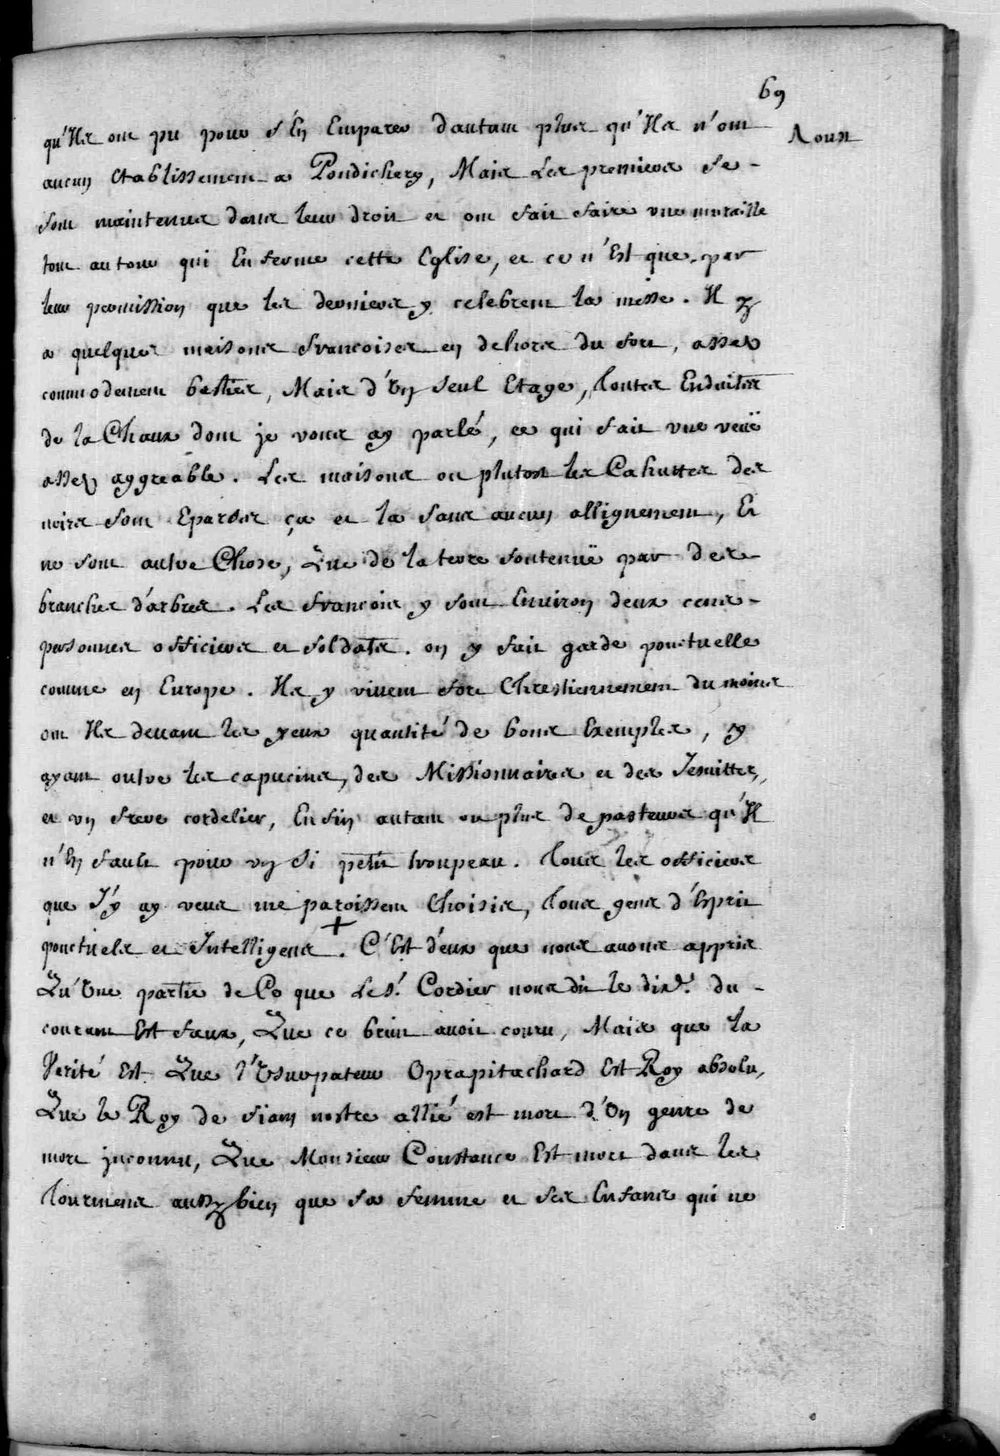 69
Aoust
qu'Ils ont pu pour s'En Emparer d'autant plus qu'Ils n'ont
aucun Etablissement a Pondichery, Mais Les premiers se-
sont maintenus dans leur droit et ont fait faire une muraille
tout autour qui Enferme cette Eglise, et ce n'Est que par
leur permission que les derniers y celebrent la messe. Il y
a quelques maisons francoises en dehors du fort, assez
commodement basties, Mais d'Un seul Etage, Toutes Enduites
de la Chaux dont je vous ay parlé, ce qui fait une veuë
assez aggreable. Les maisons ou plutost les Cahuttes des
noirs sont Eparses ça et la sans aucun allignement, Et
ne sont autre Chose, Que de la terre soutenuë par des-
branches d'arbres. Les francois y sont Environ deux cens-
personnes officiers et soldats. on y fait garde ponctuelle
comme en Europe. Ils y vivent fort Chrestiennement du moins
ont Ils devant les yeux quantité de bons Exemples, y
ayant outre les capucins, des Missionnaires et des Jesuittes,
et un frere cordelier, Enfin autant ou plus de pasteurs qu'Il
n'En faut pour un si petit troupeau. Tous les officiers
que J'y ay veus me paroissent Choisis, Tous gens d'Esprit
ponctuels et Intelligens +. C'Est d'eux que nous avons appris
Qu'Une partie de Ce que Le Sr. Cordier nous dit le dixe. du-
courant Est faux, Que ce bruit avoit couru, Mais que la
Verité Est Que l'Usurpateur Oprapitachard Est Roy absolu,
Que le Roy de Siam nostre allié est mort d'Un genre de
mort jnconnu, Que Monsieur Constance Est mort dans les
Tourmens aussy bien que sa femme et ses Enfans qui ne